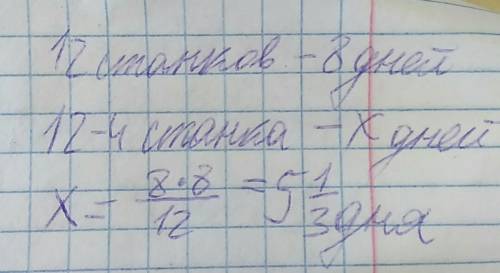 12 станков - 8 дней
12-4 станка - х дней
х = 8·8/12 = 5 1/3 дня